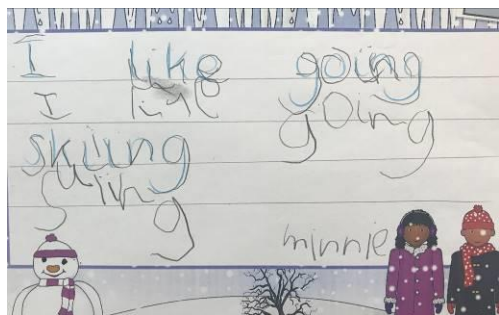 I like going
I like going
skiing
skiing
minnie